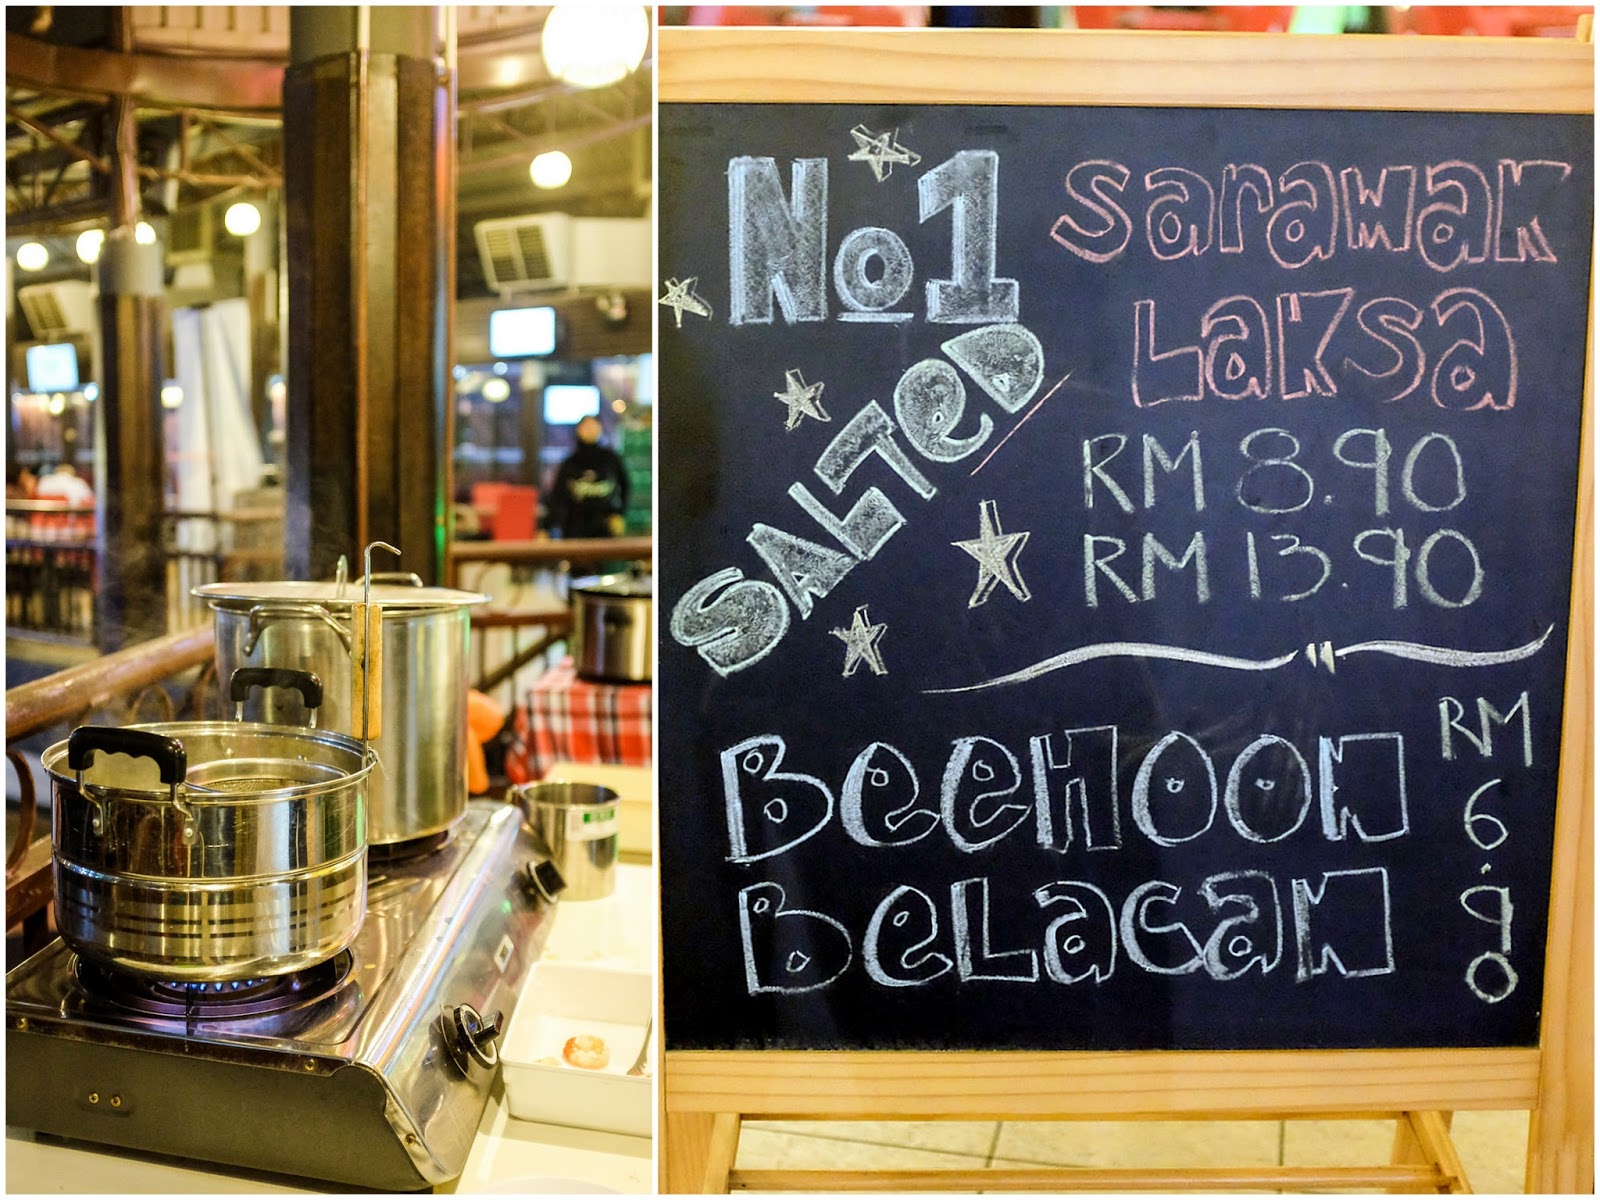 No1
SALTeD
Sarawak
Laksa
RM 8.90
RM 13.90
BeeHOON
BeLacaN
RM
6.90